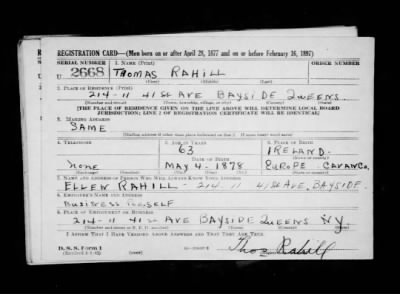 REGISTRATION CARD—(Men born on or after April 28, 1877 and on or before February 16, 1897)
SERIAL NUMBER 1. NAME (Print) ORDER NUMBER
U 2668 THOMAS RAHILL
2. PLACE OF RESIDENCE (Print)
214-11 41ST AVE BAYSIDE QUEENS
(Number and street) (Town, township, village, or city) (County) (State)
[THE PLACE OF RESIDENCE GIVEN ON THE LINE ABOVE WILL DETERMINE LOCAL BOARD
JURISDICTION; LINE 2 OF REGISTRATION CERTIFICATE WILL BE IDENTICAL]
3. MAILING ADDRESS
SAME
[Mailing address if other than place indicated on line 2. If same insert word same]
4. TELEPHONE 5. AGE IN YEARS 6. PLACE OF BIRTH
63 IRELAND
DATE OF BIRTH
NONE MAY 4 - 1878 EUROPE CAVAN CO.
7. NAME AND ADDRESS OF PERSON WHO WILL ALWAYS KNOW YOUR ADDRESS
ELLEN RAHILL - 214-11 41ST AVE, BAYSIDE
8. EMPLOYER'S NAME AND ADDRESS
BUSINESS SELF
9. PLACE OF EMPLOYMENT OR BUSINESS
214-11 41ST AVE BAYSIDE QUEENS NY
(Number and street or R. F. D. number) (Town) (County) (State)
I AFFIRM THAT I HAVE VERIFIED ABOVE ANSWERS AND THAT THEY ARE TRUE.
D. S. S. Form 1
Thos Rahill